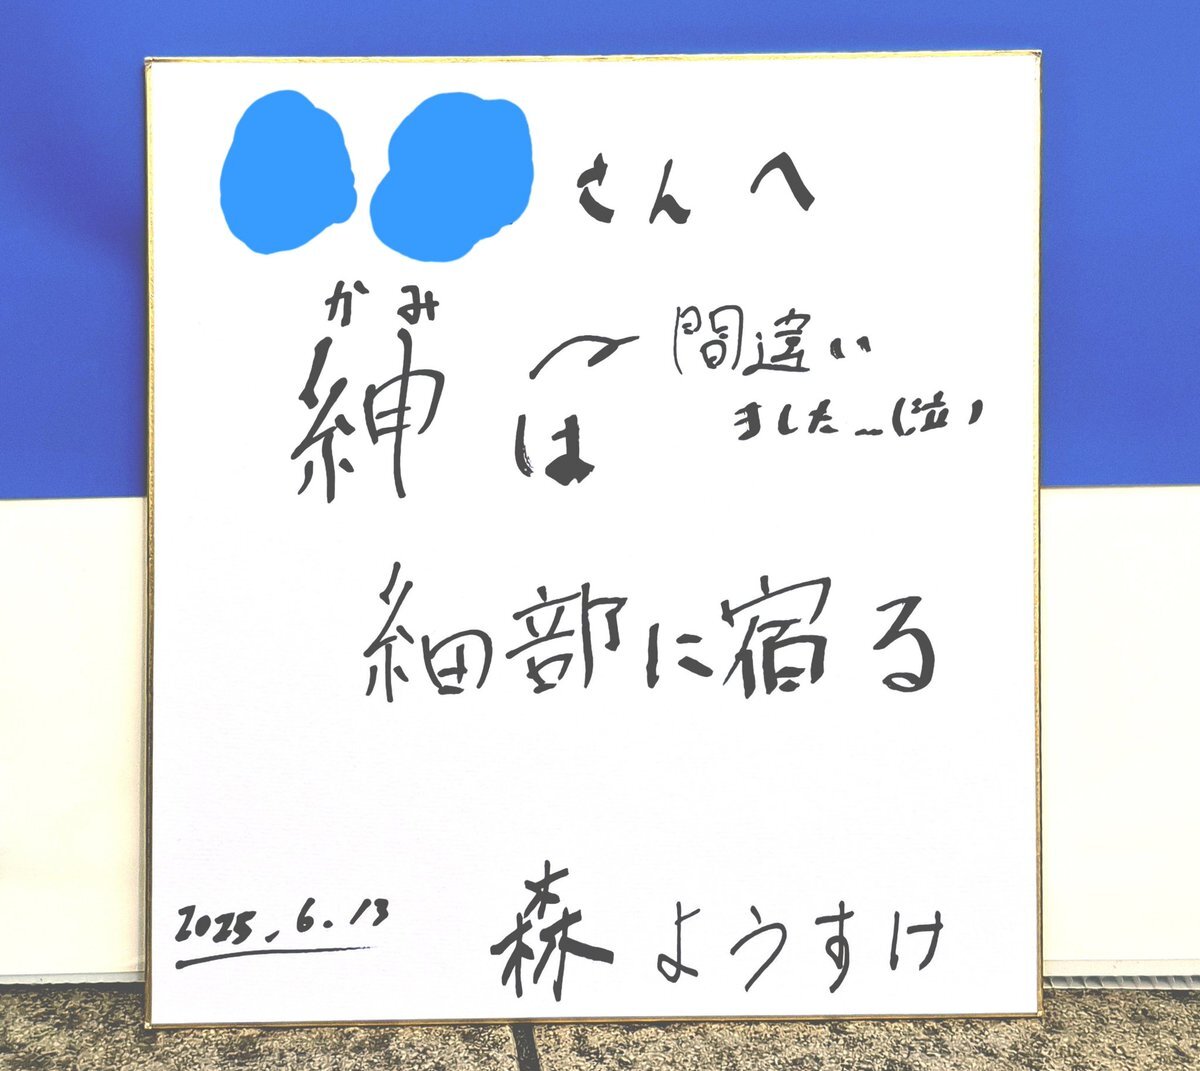 さんへ
かみ
紳は
間違い
ました…(泣)
細部に宿る
2025.6.13
森ようすけ